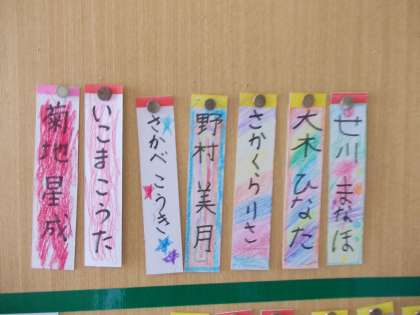 菊地星成
いこまこうた
さかべこうき
野村美月
さかくらりさ
大木ひなた
せ川まなほ